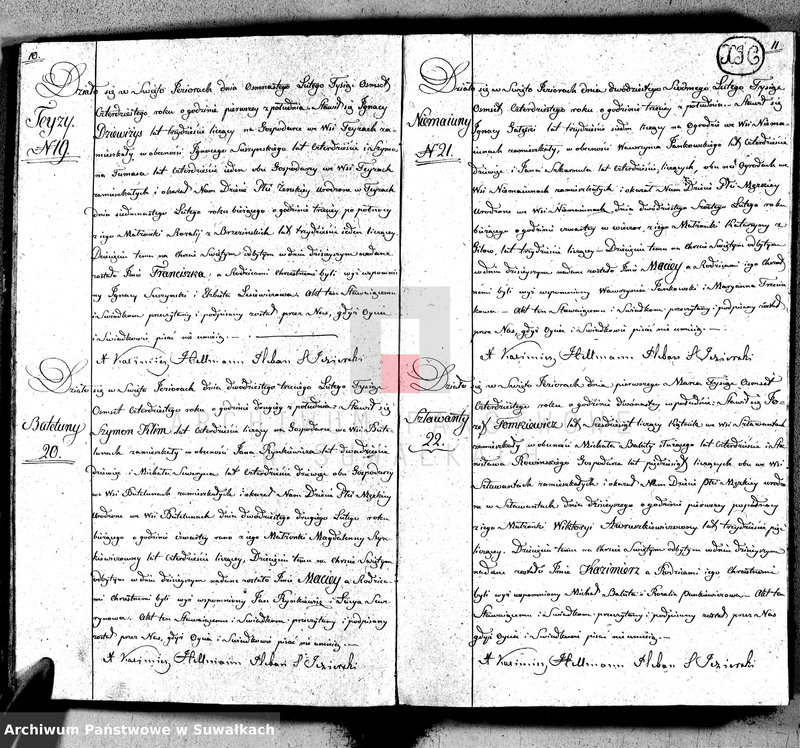 10.
Teyzy.
N19.
Działo się w Swięto Jeziorach dnia Osmnastego Lutego Tysiąc Osmset
Czterdziestego roku o godzinie pierwszey z południa. Stawił się Ignacy
lat trzydzieście liczący na Gospodarce we Wsi Teyzach za-
mieszkały w obecności Ignacego Surzynskiego lat Czterdzieście i Szymo-
na lat Czterdzieście ieden obu Gospodarzy we Wsi Teyzach
zamieszkałych i okazał Nam Dziecie Płci Zenskiey Urodzone w Teyzach
dnia siedmnastego Lutego roku bieżącego o godzinie trzeciey po północy
z iego Małzonki Rozalij z Brzezinskich lat trzydzieście ieden liczącey.
Dziecięciu temu na chrzcie Swiętym odbytym w dniu dzisieyszym nadane
zostało Imie Franciszka, a Rodzicami chrzestnemi byli wyż wspomnio-
ny Ignacy Surzynski i Elzbieta Akt ten Stawaiącemu
i Swiadkom przeczytany i podpisany został przez Nas, gdyż Oyciec
i Swiadkowie pisać nie umieią. —
X Kazimierz Hellmann Pleban S Jezierski
Bateluny
20.
Działo się w Swięto Jeziorach dnia dwudziestego trzeciego Lutego Tysiąc
Osmset Czterdziestego roku o godzinie drugiey z południa. Stawił się
Szymon Klim lat Czterdzieście liczący na Gospodarce we Wsi Bate-
lunach zamieszkały w obecności Jana Rynkiewicza lat dwadzieścia
dziewięc i Michała Surzyna lat Czterdzieście dziewięc obu Gospodarzy
we Wsi Batelunach zamieszkałych i okazał Nam Dziecie Płci Męzkiey
Urodzone we Wsi Batelunach dnia dwudziestego drugiego Lutego roku
bieżącego o godzinie czwartey rano z iego Małzonki Magdaleny Ryn-
kiewiczowney lat Czterdzieście liczącey, Dziecięciu temu na Chrzcie Swiętym
odbytym w dniu dzisieyszym nadane zostało Imie Maciey a Rodzica-
mi Chrzestnemi byli wyż wspomniony Jan Rynkiewicz i Łucya Surz-
ynowa. Akt ten Stawaiącemu i Swiadkom przeczytany i podpisany
został przez Nas, gdyż Oyciec i Swiadkowie pisać nie umieią. —
X Kazimierz Hellmann Pleban S Jezierski
11
Niemaiuny
N21.
Działo się w Swięto Jeziorach dnia dwudziestego Siodmego Lutego Tysiąc
Osmset Czterdziestego roku o godzinie trzeciey z południa. Stawił się
Ignacy lat trzydzieście siedm liczący na Ogrodzie we Wsi Niema-
iunach zamieszkały, w obecności Wawrzynca Jankowskiego lat Czterdzieście
dziewięc i Jana lat Czterdzieście liczących, obu na Ogrodach we
Wsi Niemaiunach zamieszkałych i okazał Nam Dziecie Płci Męzkiey
Urodzone we Wsi Niemaiunach dnia dwudziestego Szostego Lutego roku
bieżącego o godzinie czwartey w wieczor z iego Małzonki Katarzyny z
lat trzydzieście liczącey — Dziecięciu temu na chrzcie Swiętym odbytym
w dniu dzisieyszym nadane zostało Imie Maciey a Rodzicami iego Chrzest-
nemi byli wyż wspomniony Wawrzyniec Jankowski i Maryanna
Akt ten Stawaiącemu i Swiadkom przeczytany i podpisany został
przez Nas, gdyż Oyciec i Swiadkowie pisać nie umieią. —
X Kazimierz Hellmann Pleban S Jezierski
Sztawanty
22.
Działo się w Swięto Jeziorach dnia pierwszego Marca Tysiąc Osmset
Czterdziestego roku o godzinie dwunastey w południe. Stawił się Jo-
zef Tomkiewicz lat liczący we Wsi Sztawantach
zamieszkały w obecności Michała Baluty lat Czterdzieście i Sta-
nisława Rowinskiego Gospodarza lat pięddziesiąt liczących obu we Wsi
Sztawantach zamieszkałych i okazał Nam Dziecie Płci Męzkiey urodzo-
ne w Sztawantach dnia dzisieyszego o godzinie pierwszey popołnocy
z iego Małzonki Wiktoryi lat trzydzieście pięc
liczącey. Dziecięciu temu na chrzcie Swiętym odbytym w dniu dzisieyszym
nadane zostało Imie Kazimierz a Rodzicami iego Chrzestnemi
byli wyż wspomniony Michał Baluta i Rozalia Pankiewiczowa — Akt ten
Stawaiącemu i Swiadkom przeczytany i podpisany został przez Nas
gdyż Oyciec i Swiadkowie pisać nie umieią. —
X Kazimierz Hellmann Pleban S Jezierski
Archiwum Państwowe w Suwałkach